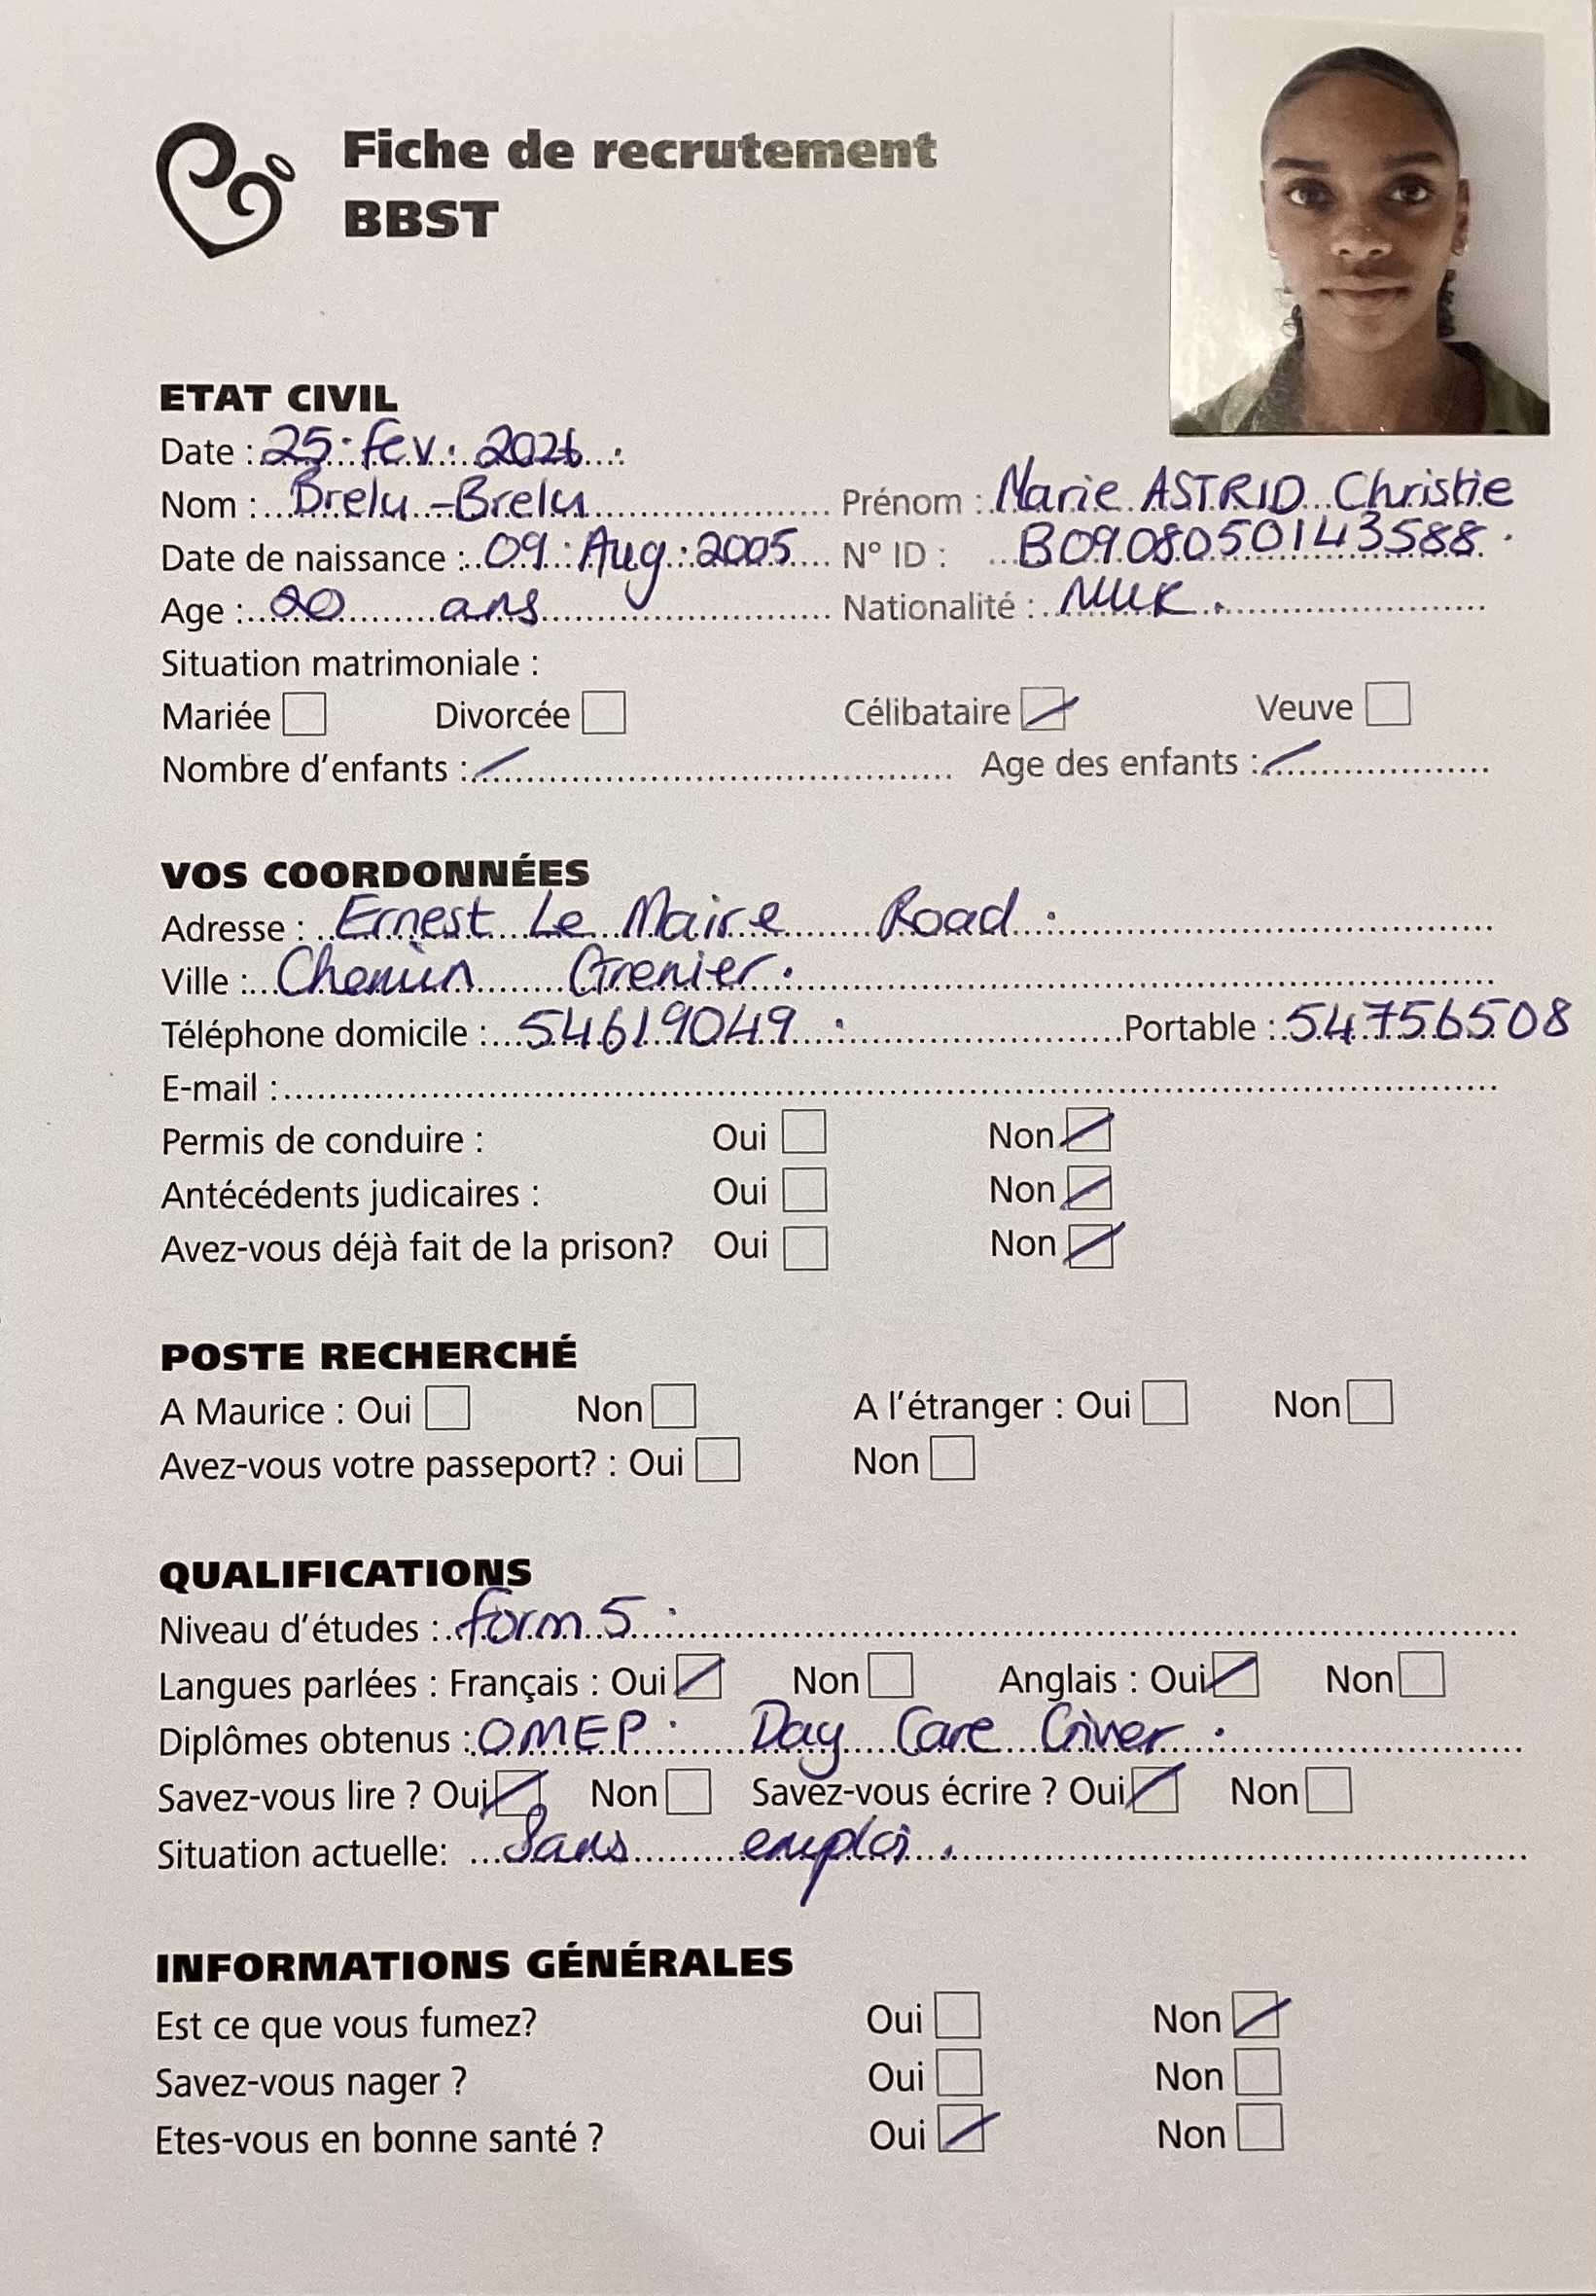 Fiche de recrutement
BBST
ETAT CIVIL
Date : 25 fev. 2026.
Nom : Brelu-Brelu Prénom : Marie ASTRID Christie
Date de naissance : 09 Aug 2005 N° ID : B0908050143588.
Age : 20 ans Nationalité :
Situation matrimoniale :
Mariée Divorcée Célibataire Veuve
Nombre d'enfants : / Age des enfants : /
VOS COORDONNÉES
Adresse : Ernest Le Maire Road.
Ville : Chemin Grenier.
Téléphone domicile : 54619049. Portable : 54756508
E-mail :
Permis de conduire : Oui Non
Antécédents judicaires : Oui Non
Avez-vous déjà fait de la prison? Oui Non
POSTE RECHERCHÉ
A Maurice : Oui Non A l'étranger : Oui Non
Avez-vous votre passeport? : Oui Non
QUALIFICATIONS
Niveau d'études : form 5.
Langues parlées : Français : Oui Non Anglais : Oui Non
Diplômes obtenus : OMEP. Day Care Giver.
Savez-vous lire ? Oui Non Savez-vous écrire ? Oui Non
Situation actuelle: Sans emploi.
INFORMATIONS GÉNÉRALES
Est ce que vous fumez? Oui Non
Savez-vous nager ? Oui Non
Etes-vous en bonne santé ? Oui Non